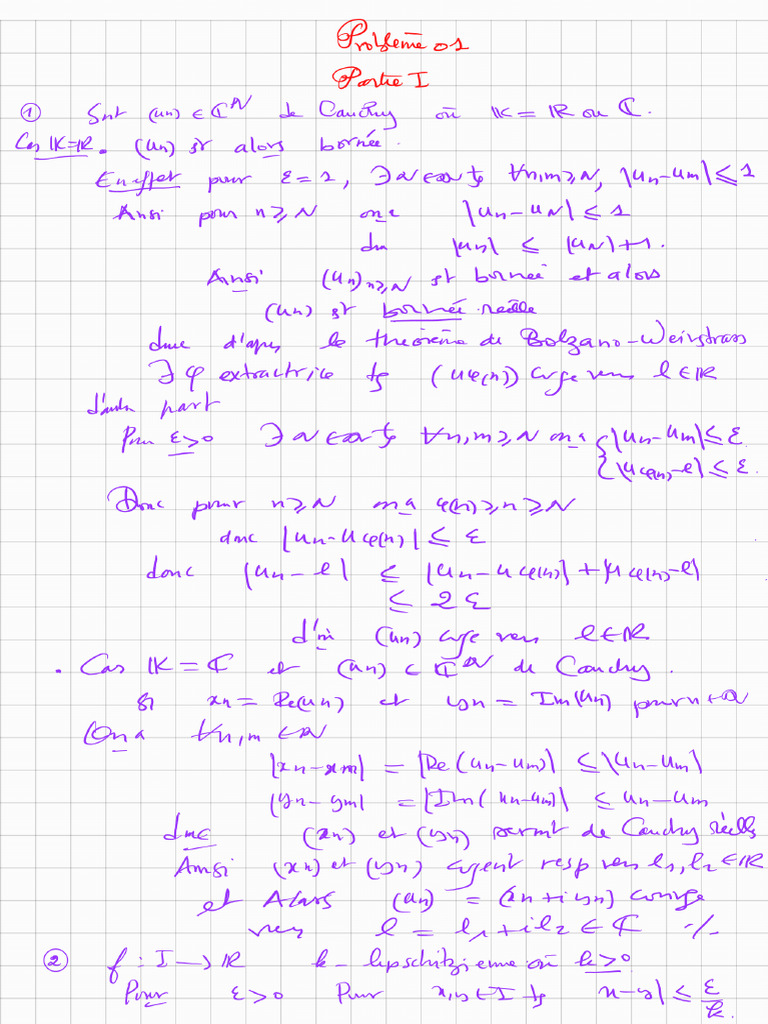 Problème 01
Partie I
① Soit (un) ∈ ℂ^ℕ de Cauchy où 𝕂 = ℝ ou ℂ.
Cas 𝕂=ℝ. (un) est alors bornée.
En effet pour ε = 1, ∃N∈ℕ tq ∀n,m ≥ N, |un - um| ≤ 1
Ainsi pour n ≥ N on a |un - uN| ≤ 1
donc |un| ≤ |uN| + 1.
Ainsi (un)n≥N est bornée et alors
(un) est bornée réelle
donc d'après le théorème de Bolzano-Weirstrass
∃ φ extractrice tq (uφ(n)) cvge vers l ∈ ℝ
d'autre part
Pour ε>0 ∃N∈ℕ tq ∀n,m ≥ N on a { |un - um| ≤ ε
{ |uφ(n) - l| ≤ ε.
Donc pour n ≥ N on a φ(n) ≥ n ≥ N
donc |un - uφ(n)| ≤ ε
donc |un - l| ≤ |un - uφ(n)| + |uφ(n) - l|
≤ 2ε
d'où (un) cvge vers l∈ℝ
. Cas 𝕂 = ℂ et (un) ⊂ ℂ^ℕ de Cauchy.
Si xn = Re(un) et yn = Im(un) pour n∈ℕ
On a ∀n,m ∈ ℕ
|xn - xm| = |Re(un - um)| ≤ |un - um|
|yn - ym| = |Im(un - um)| ≤ un - um
donc (xn) et (yn) sont de Cauchy réelles
Ainsi (xn) et (yn) cvgent resp vers l1, l2 ∈ ℝ
et Alors (un) = (xn + iyn) converge
vers l = l1 + il2 ∈ ℂ ./.
② f : I → ℝ k-lipschitzienne où k>0
Pour ε>0 Pour x,y ∈ I tq x - y| ≤ ε/k.